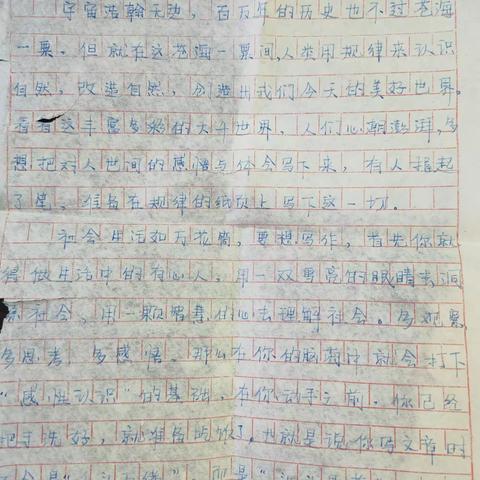 宇宙浩翰无边，百万年的历史也不过苍海
一粟。但就在这苍海一粟间，人类用规律来认识
自然，改造自然，创造出我们今天的美好世界。
看着这丰富多彩的大千世界，人们心潮澎湃，多
想把对人世间的感悟与体会写下来，有人提起
了笔，准备在规律的纸页上写下这一切。
社会生活如万花筒，要想写作，首先你就
得做生活中的有心人，用一双雪亮的眼睛去洞
察社会，用一颗智慧的心去理解社会。多观察
多思考，多感悟。那么在你的脑海中就会打下
“感性认识”的基础，在你动手之前，你已经
把手洗好，就准备吃饭了，也就是说你写文章时